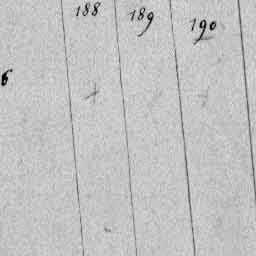 188 189 190
6